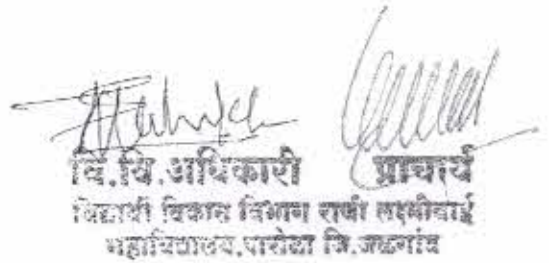 वि.वि.अधिकारी प्राचार्य
विद्यार्थी विकास विभाग राणी लक्ष्मीबाई
महाविद्यालय,पारोळा जि.जळगांव